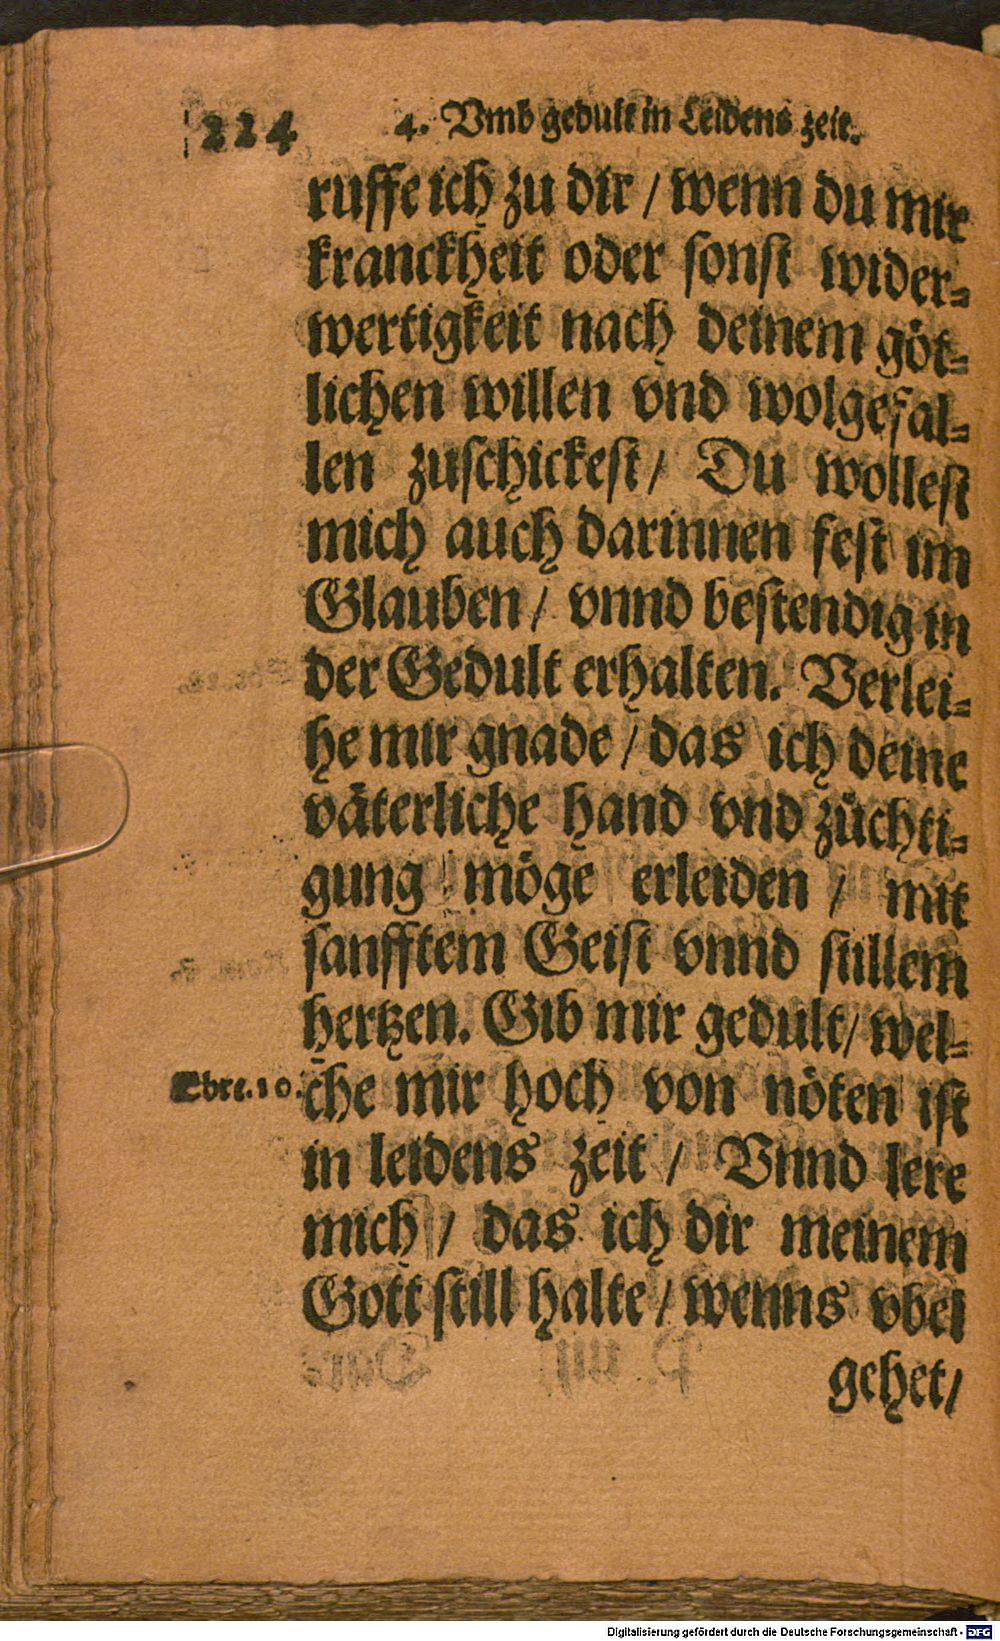 224 4. Vmb gedult in Leidens zeit.
ruffe ich zu dir / wenn du mir
kranckheit oder sonst wider-
wertigkeit nach deinem göt-
lichen willen vnd wolgefal-
len zuschickest / Du wollest
mich auch darinnen fest im
Glauben / vnnd bestendig in
der Gedult erhalten. Verlei-
he mir gnade / das ich deine
väterliche hand vnd züchti-
gung möge erleiden / mit
sanfftem Geist vnnd stillem
hertzen. Gib mir gedult / wel-
Ebre. 10. che mir hoch von nöten ist
in leidens zeit / Vnnd lere
mich / das ich dir meinem
Gott still halte / wenns vbel
gehet /
Digitalisierung gefördert durch die Deutsche Forschungsgemeinschaft - DFG